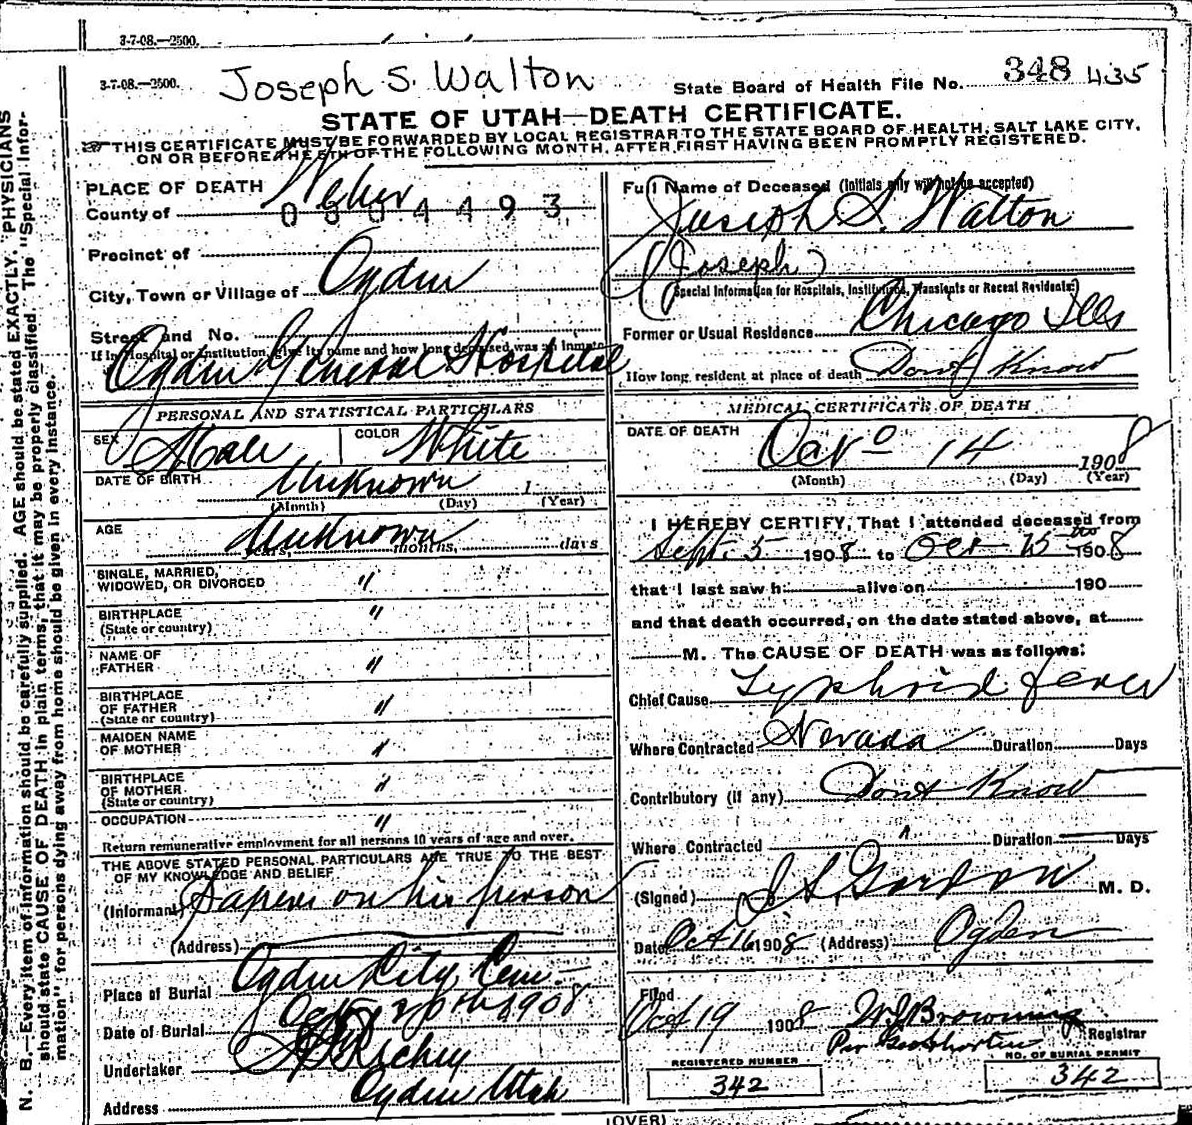 3-7-08.—2500.
3-7-08.—2500. Joseph S. Walton State Board of Health File No. 348 435
STATE OF UTAH—DEATH CERTIFICATE.
THIS CERTIFICATE MUST BE FORWARDED BY LOCAL REGISTRAR TO THE STATE BOARD OF HEALTH, SALT LAKE CITY,
ON OR BEFORE THE 5TH OF THE FOLLOWING MONTH, AFTER FIRST HAVING BEEN PROMPTLY REGISTERED.
N. B.—Every item of information should be carefully supplied. AGE should be stated EXACTLY. PHYSICIANS
should state CAUSE OF DEATH in plain terms, that it may be properly classified. The "Special Infor-
mation" for persons dying away from home should be given in every instance.
PLACE OF DEATH
County of Weber
0804493
Precinct of
City, Town or Village of Ogden
Street and No.
If in Hospital or Institution, give its name and how long deceased was an inmate
Ogden General Hospital
PERSONAL AND STATISTICAL PARTICULARS
SEX Male COLOR White
DATE OF BIRTH Unknown 1
(Month) (Day) (Year)
AGE Unknown
years, months, days
SINGLE, MARRIED,
WIDOWED, OR DIVORCED "
BIRTHPLACE "
(State or country)
NAME OF
FATHER "
BIRTHPLACE
OF FATHER "
(State or country)
MAIDEN NAME
OF MOTHER "
BIRTHPLACE
OF MOTHER "
(State or country)
OCCUPATION "
Return remunerative employment for all persons 10 years of age and over.
THE ABOVE STATED PERSONAL PARTICULARS ARE TRUE TO THE BEST
OF MY KNOWLEDGE AND BELIEF
(Informant) Papers on his person
(Address)
Place of Burial Ogden City Cem.
Date of Burial Oct 20th 1908
Undertaker
Address Ogden Utah
Full Name of Deceased (Initials only will not be accepted)
Joseph S. Walton
(Joseph)
(Special Information for Hospitals, Institutions, Transients or Recent Residents:)
Former or Usual Residence Chicago Ills
How long resident at place of death Dont Know
MEDICAL CERTIFICATE OF DEATH
DATE OF DEATH Oct 14 1908
(Month) (Day) (Year)
I HEREBY CERTIFY, That I attended deceased from
Sept. 5 1908 to Oct 15 1908
that I last saw h alive on 190
and that death occurred, on the date stated above, at
M. The CAUSE OF DEATH was as follows:
Chief Cause Typhoid fever
Where Contracted Nevada Duration Days
Contributory (if any) Dont Know
Where Contracted " Duration Days
(Signed) Gordon M. D.
Date Oct 16 1908 (Address) Ogden
Filed
Oct 19 1908 W J Browning
Per Registrar
REGISTERED NUMBER
342
NO. OF BURIAL PERMIT
342
(OVER)